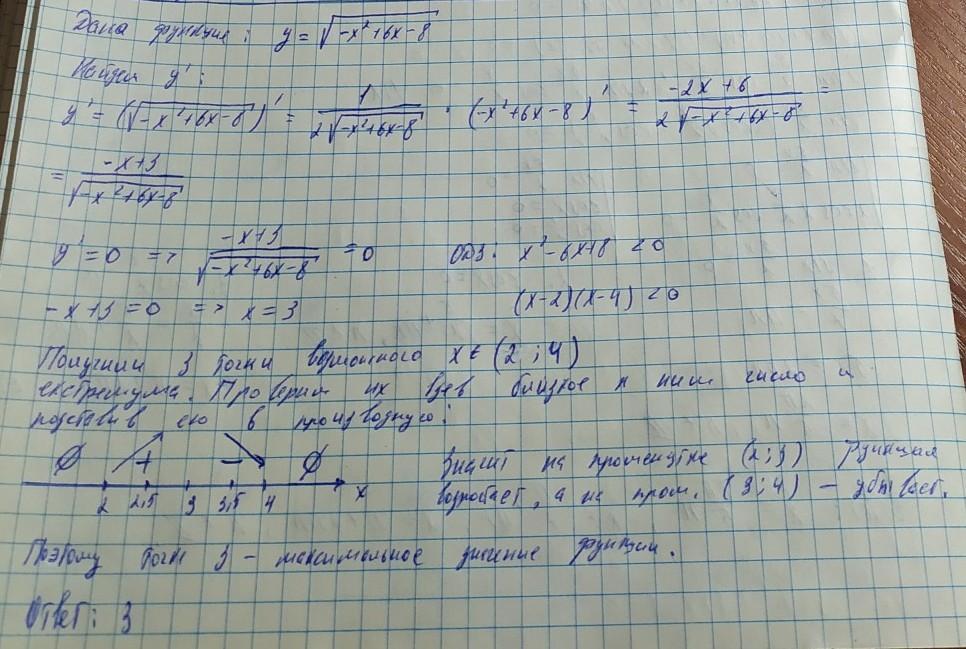 Дана функция: y = √(-x²+6x-8)
Найдем y':
y' = (√(-x²+6x-8))' = 1/(2√(-x²+6x-8)) · (-x²+6x-8)' = (-2x+6)/(2√(-x²+6x-8)) =
= (-x+3)/√(-x²+6x-8)
y'=0 => (-x+3)/√(-x²+6x-8) = 0 ОДЗ: x²-6x+8 <0
-x+3=0 => x=3 (x-2)(x-4)<0
Получили 3 точки возможного x∈(2;4)
екстремума. Проверим их взев близкое к ним число и
подставив его в производную:
∅ + - ∅
2 2,5 3 3,5 4 x
Значит на промежутке (2;3) функция
возрастает, а на пром. (3;4) – убывает.
Поэтому точк 3 – максимальное значение функции.
Ответ: 3